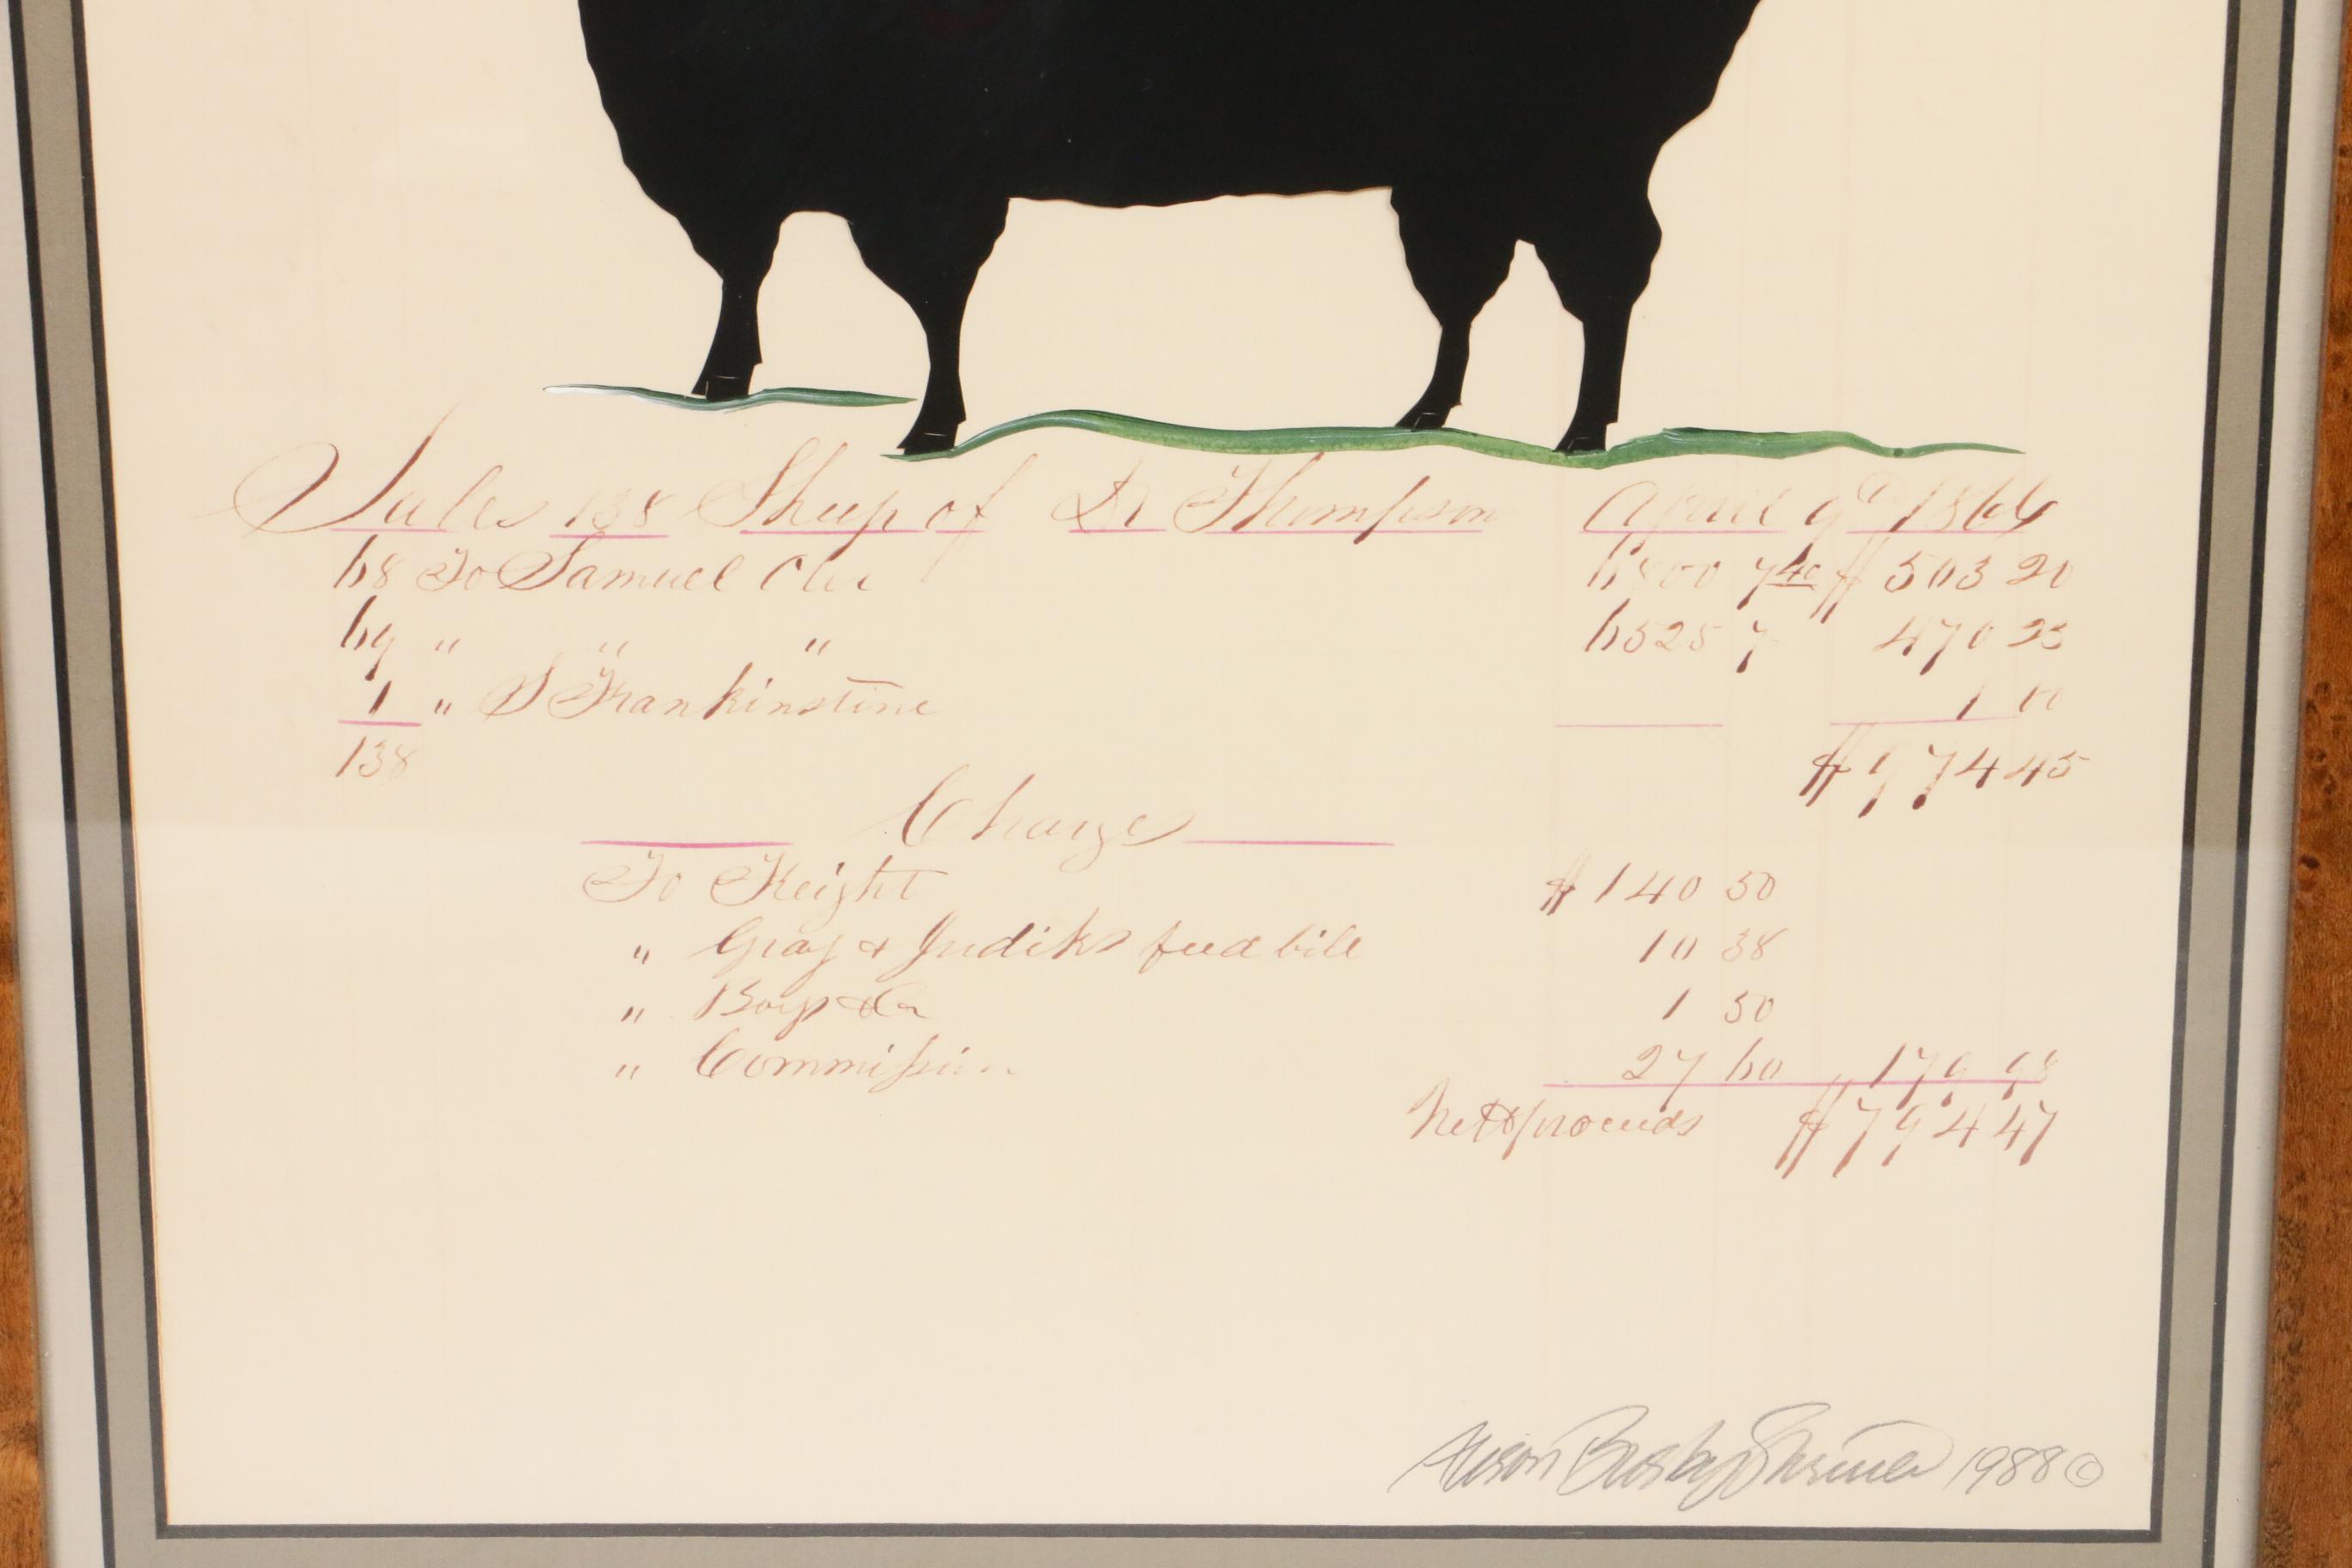 Sales 138 Sheep of Dr Thompson April 9th 1866
68 To Samuel 6800 7 40 $ 503 20
69 " " " 6525 7 - 470 25
1 " S Frankinstine 1 00
138 $ 974 45
Charges
To Freight $ 140 50
" Gray & Judiks feed bill 10 38
" Boys &c 1 50
" Commission 27 60 179 98
Nett proceeds $ 794 47
Busby Shriver 1988 ©